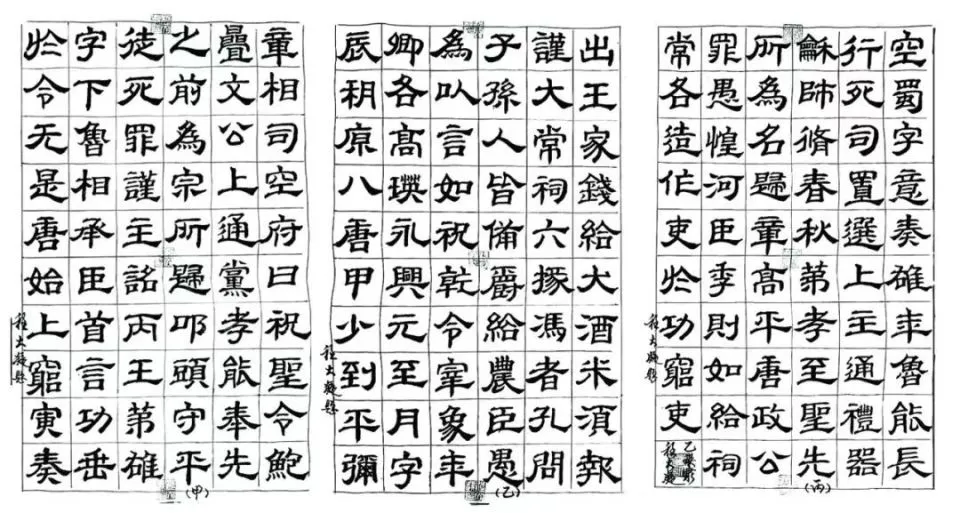 章相司空府曰祝聖令鮑
疊文公上通黨孝能奉先
之前為宗所歸叩頭守平
徒死罪謹主詔丙王第雒
字下魯相承臣首言功垂
於令无是唐始上窮寅奏
(甲)
出王家錢給犬酒米須報
謹大常祠六掾馮者孔問
子孫人皆備爵給農臣愚
為以言如祝乾令宰象年
卿各高瑛永興元至月字
辰朔原八唐甲少到平彌
(乙)
空蜀字意奏雒年魯能長
行死司置選上主通禮器
龢師脩春秋第孝至聖先
所為名歸章高平唐政公
罪愚惶河臣季則如給祠
常各造作吏於功窮吏
(丙)